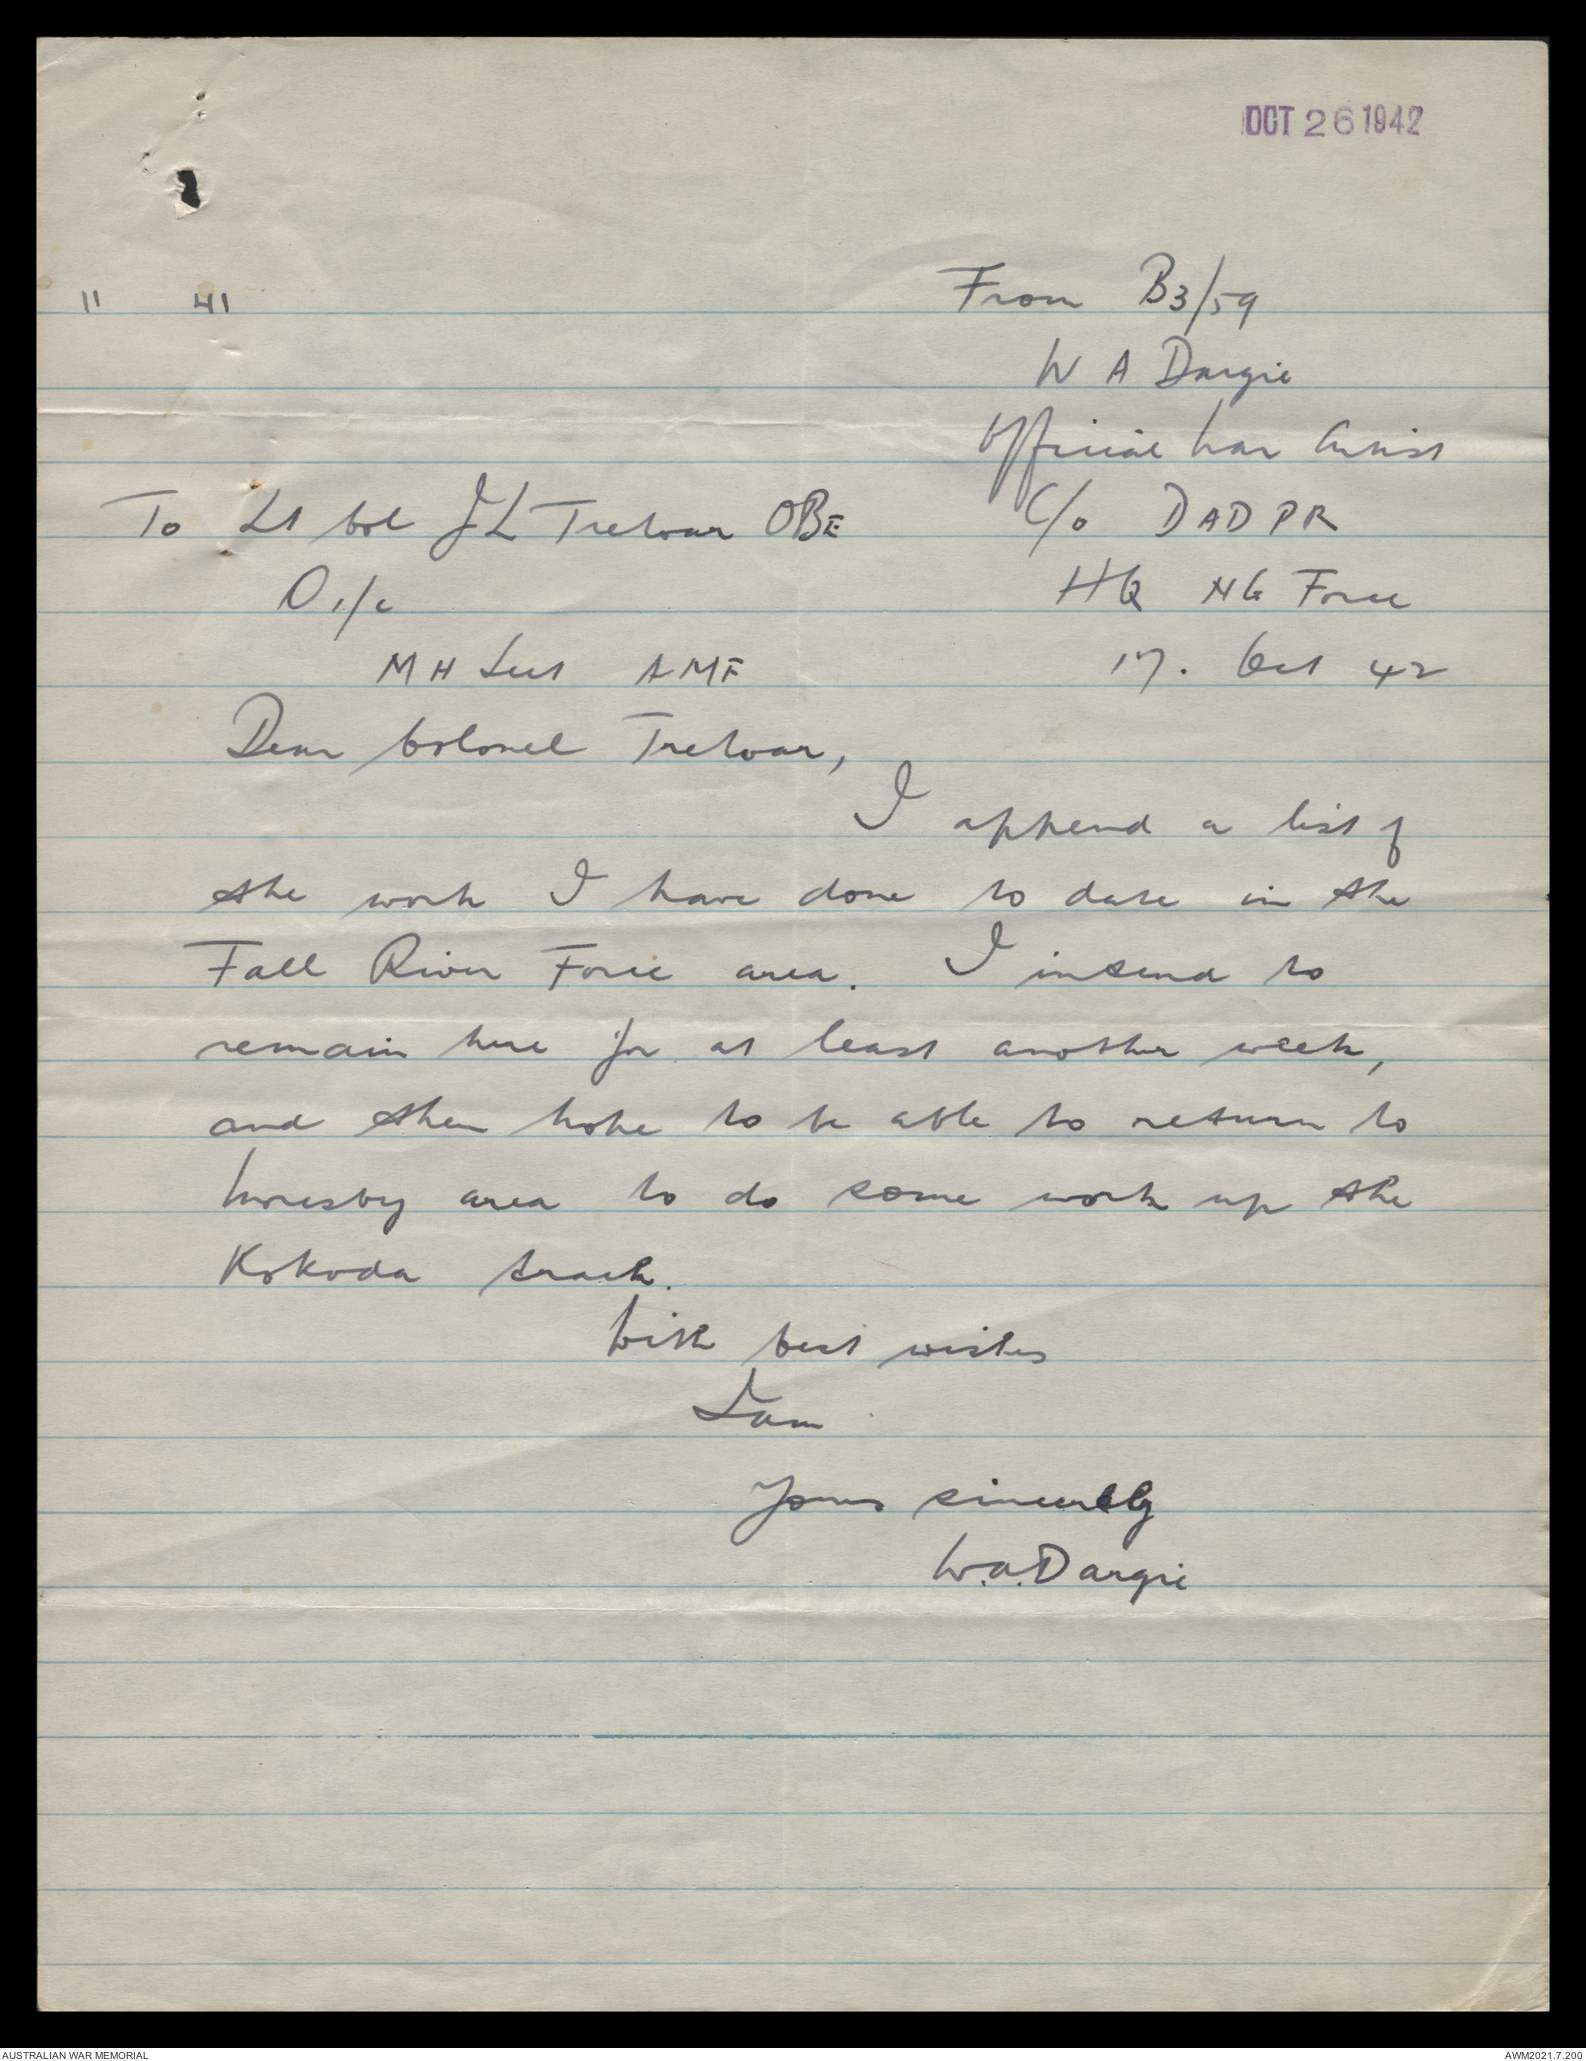 OCT 26 1942
11 41
From B3/59
W A Dargie
Official War Artist
To Lt Col J L Treloar OBE
C/o DADPR
O i/c
HQ NG Force
M H Sect AMF
17. Oct 42
Dear Colonel Treloar,
I append a list of
the work I have done to date in the
Fall River Force area. I intend to
remain here for at least another week,
and then hope to be able to return to
Moresby area to do some work up the
Kokoda track.
With best wishes
I am
Yours sincerely
W.A. Dargie
AUSTRALIAN WAR MEMORIAL
AWM2021.7.200